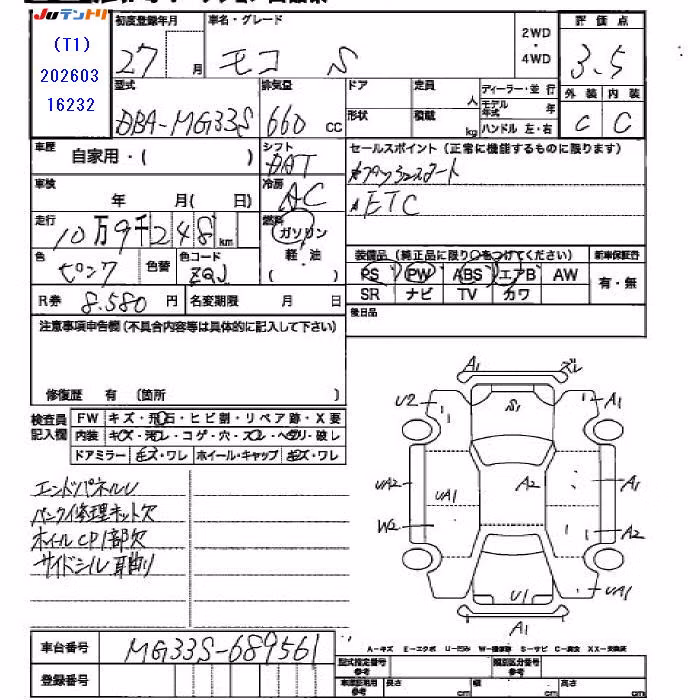 JUテントリ
(T1)
202603
16232
初度登録年月
27 月
車名・グレード
モコ S
2WD
・
4WD
評価点
3.5
外装 内装
C C
型式
DBA-MG33S
排気量
660 cc
ドア
形状
定員 人
積載 kg
ディーラー・並行
モデル年式 年
ハンドル 左・右
車歴
自家用・( )
シフト
DAT
セールスポイント(正常に機能するものに限ります)
プッシュスタート
ETC
車検
年 月( 日)
冷房
AC
走行
10万9千248km
燃料
ガソリン
軽・油
( )
色
ピンク
色替
色コード
ZQJ
装備品(純正品に限り○をつけてください)
PS PW ABS エアB AW
SR ナビ TV カワ
新車保証書
有・無
R券 8.580 円
名変期限 月 日
後日品
注意事項申告欄(不具合内容等は具体的に記入して下さい)
修復歴 有 (箇所 )
検査員
記入欄
FW キズ・飛石・ヒビ割・リペア跡・X要
内装 キズ・汚レ・コゲ・穴・スレ・ヘタリ・破レ
ドアミラー キズ・ワレ ホイール・キャップ キズ・ワレ
エンドパネルU
パンク修理キット欠
ホイールCP1部欠
サイドシル耳曲り
A1
ズレ
U2
S1
A1
UA2
UA1
A2
A1
W2
A2
U1
UA1
A1
A-キズ E-エクボ U-凹み W-補修跡 S-サビ C-腐食 XX-交換済
車台番号
MG33S-689561
登録番号
型式指定番号
参考
類別区分番号
参考
車庫証明用
参考
長さ cm
幅 cm
高さ cm